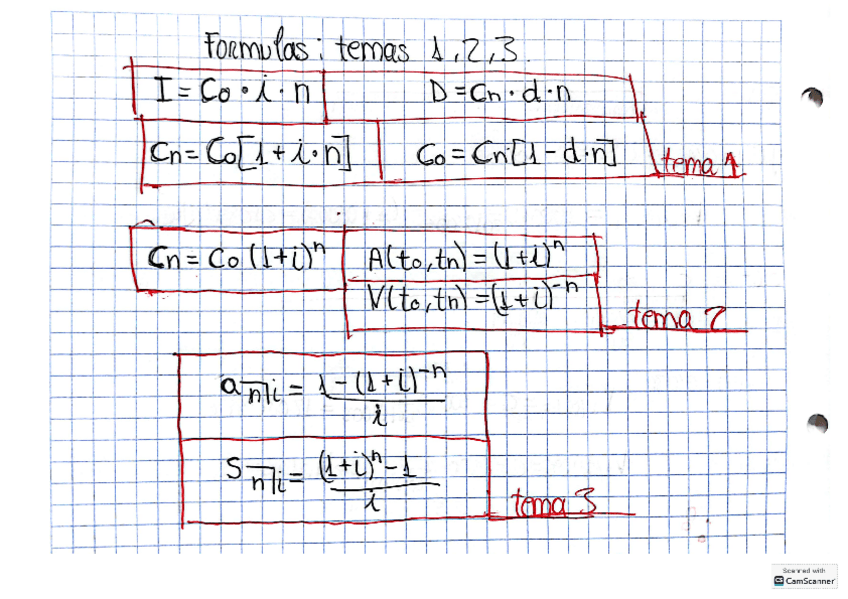 Formulas: temas 1, 2, 3.
I = Co · i · n    D = Cn · d · n
Cn = Co[1 + i · n]    Co = Cn[1 - d · n]    tema 1
Cn = Co (1+i)ⁿ    A(to, tn) = (1+i)ⁿ
V(to, tn) = (1+i)⁻ⁿ    tema 2
a n̅| i = (1 - (1+i)⁻ⁿ) / i
S n̅| i = ((1+i)ⁿ - 1) / i    tema 3
Scanned with
CS CamScanner